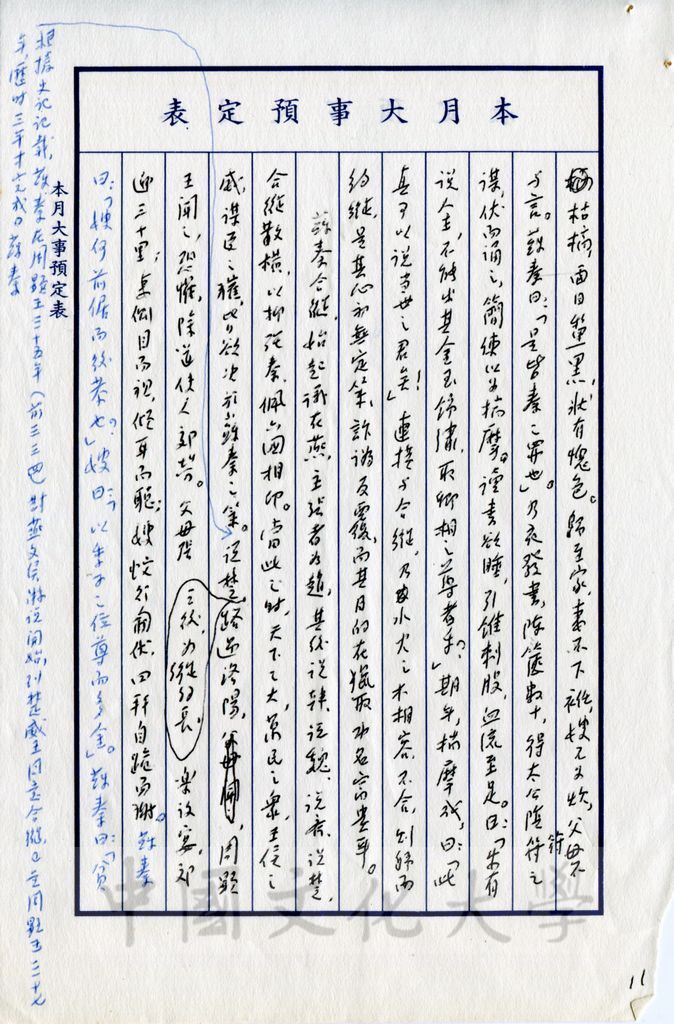 本月大事預定表
枯槁,面目黧黑,狀有愧色。歸至家,妻不下袵,嫂不為炊,父母不
與言。蘇秦曰:「是皆秦之罪也」乃夜發書,陳篋數十,得太公陰符之
謀,伏而誦之,簡練以為揣摩。讀書欲睡,引錐刺股,血流至足。曰:「安有
說人主,不能出其金玉錦繡,取卿相之尊者乎?」期年,揣摩成,曰:「此
真可以說當世之君矣!」連橫與合縱,乃水火之不相容,
約縱,是其心初無定策,詐偽反覆,而其目的在獵取功名富貴耳。
蘇秦合縱,始起議在燕,主張者為趙,其後說韓、說魏、說齊、說楚,
合縱散橫,以抑強秦,佩六國相印。當此之時,天下之大,萬民之眾,王侯之
威,謀臣之權,皆欲決於蘇秦之策。說楚,路過洛陽,周顯
王聞之,恐懼,除道使人郊勞。父母聞之,為縱約長。樂設宴,郊
迎三十里;妻側目而視,傾耳而聽;嫂蛇行匍伏,四拜自跪而謝。蘇秦
曰:「嫂何前倨而後恭也?」嫂曰:「以季子之位尊而多金」。蘇秦曰:「貧
本月大事預定表
根據史記記載,蘇秦在周顯王三十五年(前三三四)對燕文侯游說開始,到楚威王同意合縱,已是周顯王三十七
年,歷時三年才完成。蘇秦
11
中國文化大學